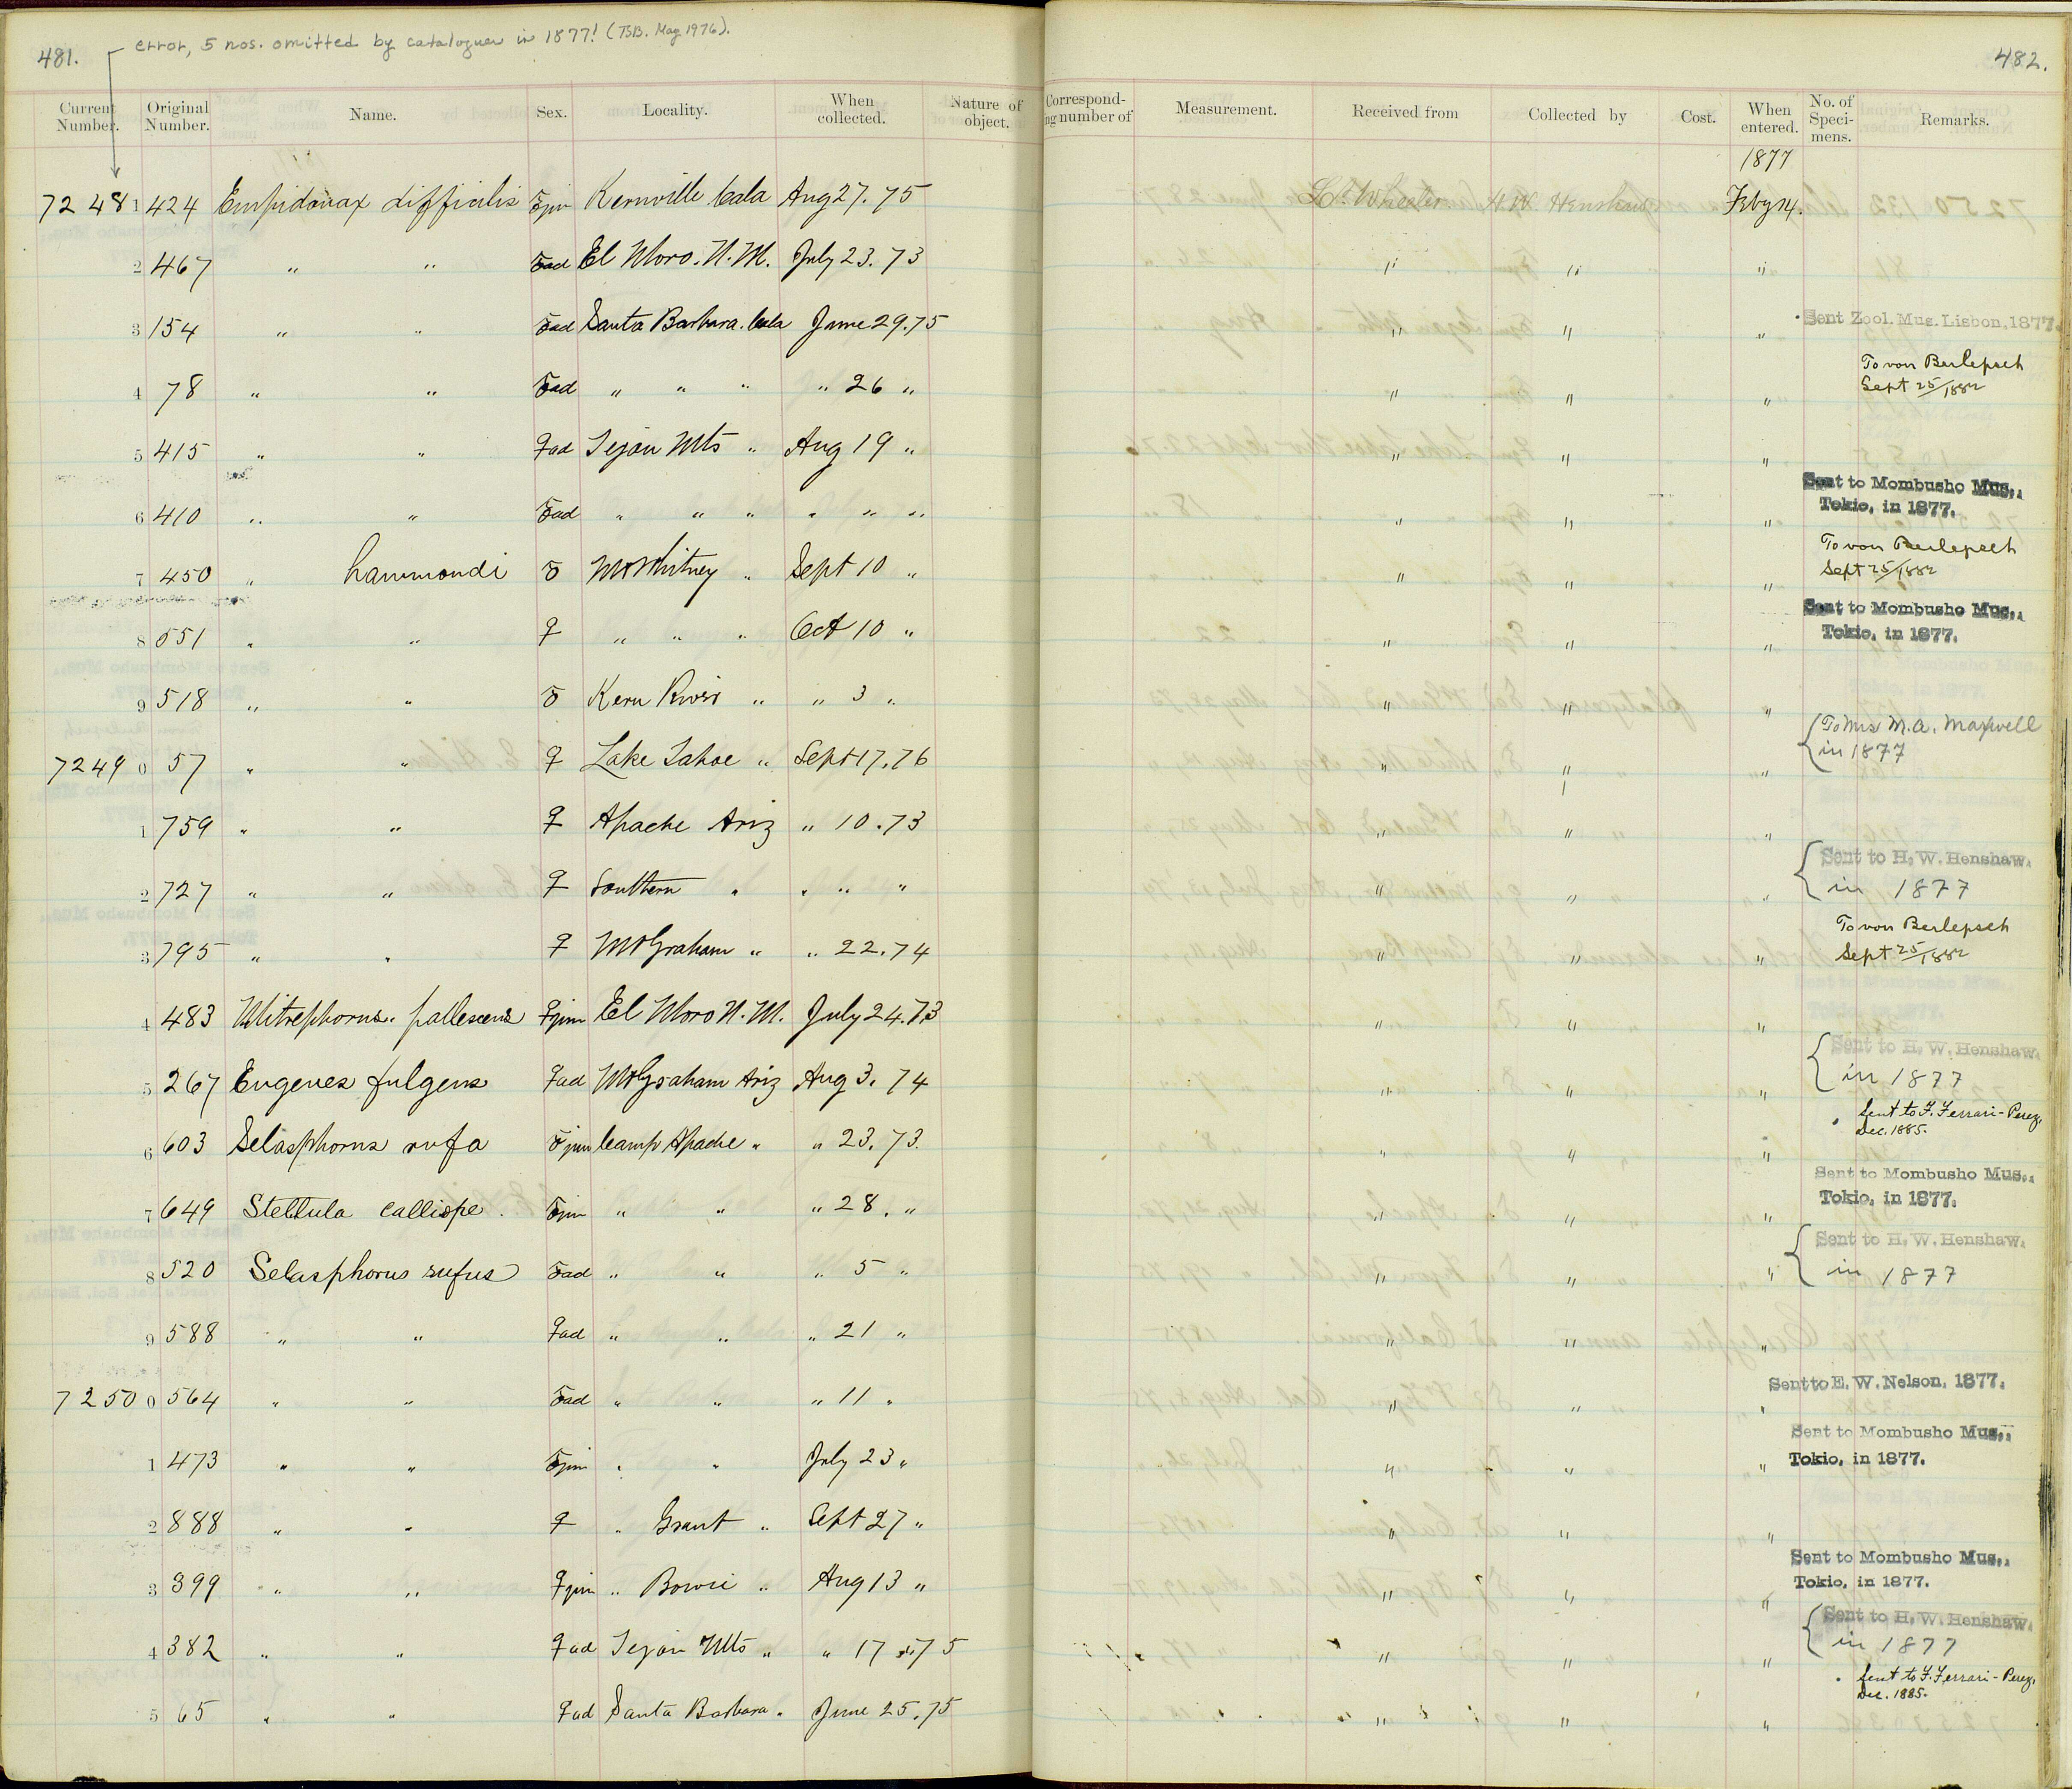 481. error, 5 nos. omitted by cataloguer in 1877! (TSB. May 1976). 482.
Current Number. Original Number. Name. Sex. Locality. When collected. Nature of object. Correspond-ing number of Measurement. Received from Collected by Cost. When entered. No. of Speci-mens. Remarks.
1877
7248 1 424 Empidonax difficilis ♂ jun Kernville Cala Aug 27. 75 Lt. Wheeler H. W. Henshaw Feby 14.
2 467 " " ♂ ad El Moro. N. M. July 23. 73 " " "
3 154 " " ♂ ad Santa Barbara. Cala June 29. 75 " " " Sent Zool. Mus. Lisbon, 1877.
4 78 " " ♂ ad " " " " 26 " " " " To von Berlepsch Sept 25/1882
5 415 " " ♀ ad Tejon Mts " Aug 19 " " " "
6 410 " " ♂ ad " " " " " " " " " Sent to Mombusho Mus., Tokio, in 1877.
7 450 " hammondi ♂ Mt Whitney " Sept 10 " " " " To von Berlepsch Sept 25/1882
8 551 " " ♀ " " " Oct 10 " " " " Sent to Mombusho Mus., Tokio, in 1877.
9 518 " " ♂ Kern River " " 3 " " " "
7249 0 57 " " ♀ Lake Tahoe " Sept 17. 76 " " " To Mrs M. A. Maxwell in 1877
1 759 " " ♀ Apache Ariz " 10. 73 " " "
2 727 " " ♀ Southern " " " " " " " Sent to H. W. Henshaw. in 1877
3 795 " " ♀ Mt Graham " " 22. 74 " " " To von Berlepsch Sept 25/1882
4 483 Mitrephorus pallescens ♀ jun El Moro N. M. July 24. 73 " " "
5 267 Eugenes fulgens ♀ ad Mt Graham Ariz Aug 3. 74 " " " Sent to H. W. Henshaw. in 1877
6 603 Selasphorus rufa ♂ jun Camp Apache " " 23. 73. " " " Sent to F. Ferrari-Perez, Dec. 1885.
7 649 Stellula calliope ♂ jun " " " 28. " " " " Sent to Mombusho Mus., Tokio, in 1877.
8 520 Selasphorus rufus ♂ ad " " " 5 " " " " Sent to H. W. Henshaw. in 1877
9 588 " " ♀ ad " " " 21 " " " "
7250 0 564 " " ♂ ad " " " 11 " " " " Sent to E. W. Nelson, 1877.
1 473 " " ♂ jun " " July 23 " " " " Sent to Mombusho Mus., Tokio, in 1877.
2 888 " " ♀ " Grant " Sept 27 " " " "
3 399 " " ♀ jun " Bowie " Aug 13 " " " " Sent to Mombusho Mus., Tokio, in 1877.
4 382 " " ♀ ad Tejon Mts " " 17 75 " " " Sent to H. W. Henshaw. in 1877
5 65 " " ♀ ad Santa Barbara " June 25. 75 " " " Sent to F. Ferrari-Perez, Dec. 1885.